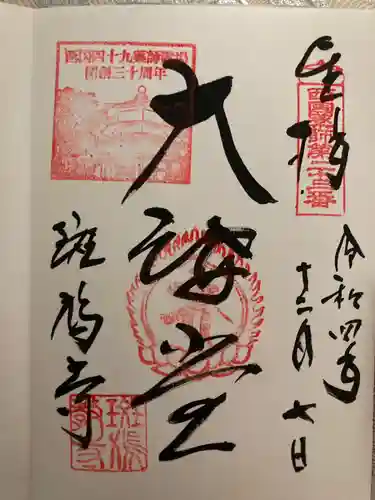 奉拝
西国薬師第二十三番
令和四年
十二月七日
西国四十九薬師霊場
開創三十周年
大講堂
斑鳩寺